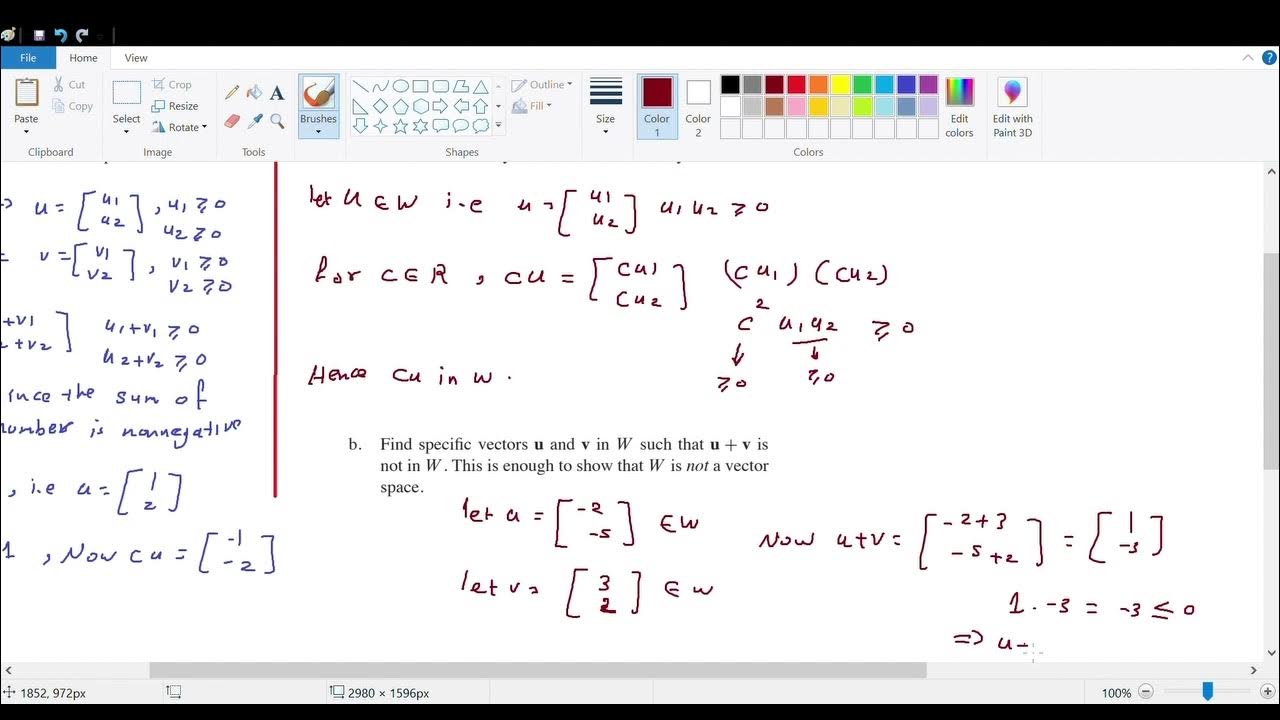 File Home View
Paste
Cut
Copy
Clipboard
Select
Crop
Resize
Rotate
Image
Tools
Brushes
Shapes
Outline
Fill
Size
Color 1
Color 2
Edit colors
Colors
Edit with Paint 3D
u = [u1 u2] , u1 ⩾ 0
u2 ⩾ 0
= v = [v1 v2] , v1 ⩾ 0
v2 ⩾ 0
+v1 +v2] u1+v1 ⩾ 0
u2+v2 ⩾ 0
ince the sum of
number is nonnegative
, i.e u = [1 2]
1 , Now cu = [-1 -2]
let u ∈ W i.e u = [u1 u2] u1 u2 ⩾ 0
for c ∈ R , cu = [cu1 cu2] (cu1) (cu2)
c² u1u2 ⩾ 0
⩾0 ⩾0
Hence cu in w .
b. Find specific vectors u and v in W such that u + v is
not in W. This is enough to show that W is not a vector
space.
let u = [-2 -5] ∈ w
let v = [3 2] ∈ w
Now u+v = [-2+3 -5+2] = [1 -3]
1 . -3 = -3 ≤ 0
⇒ u-
1852, 972px
2980 × 1596px
100%